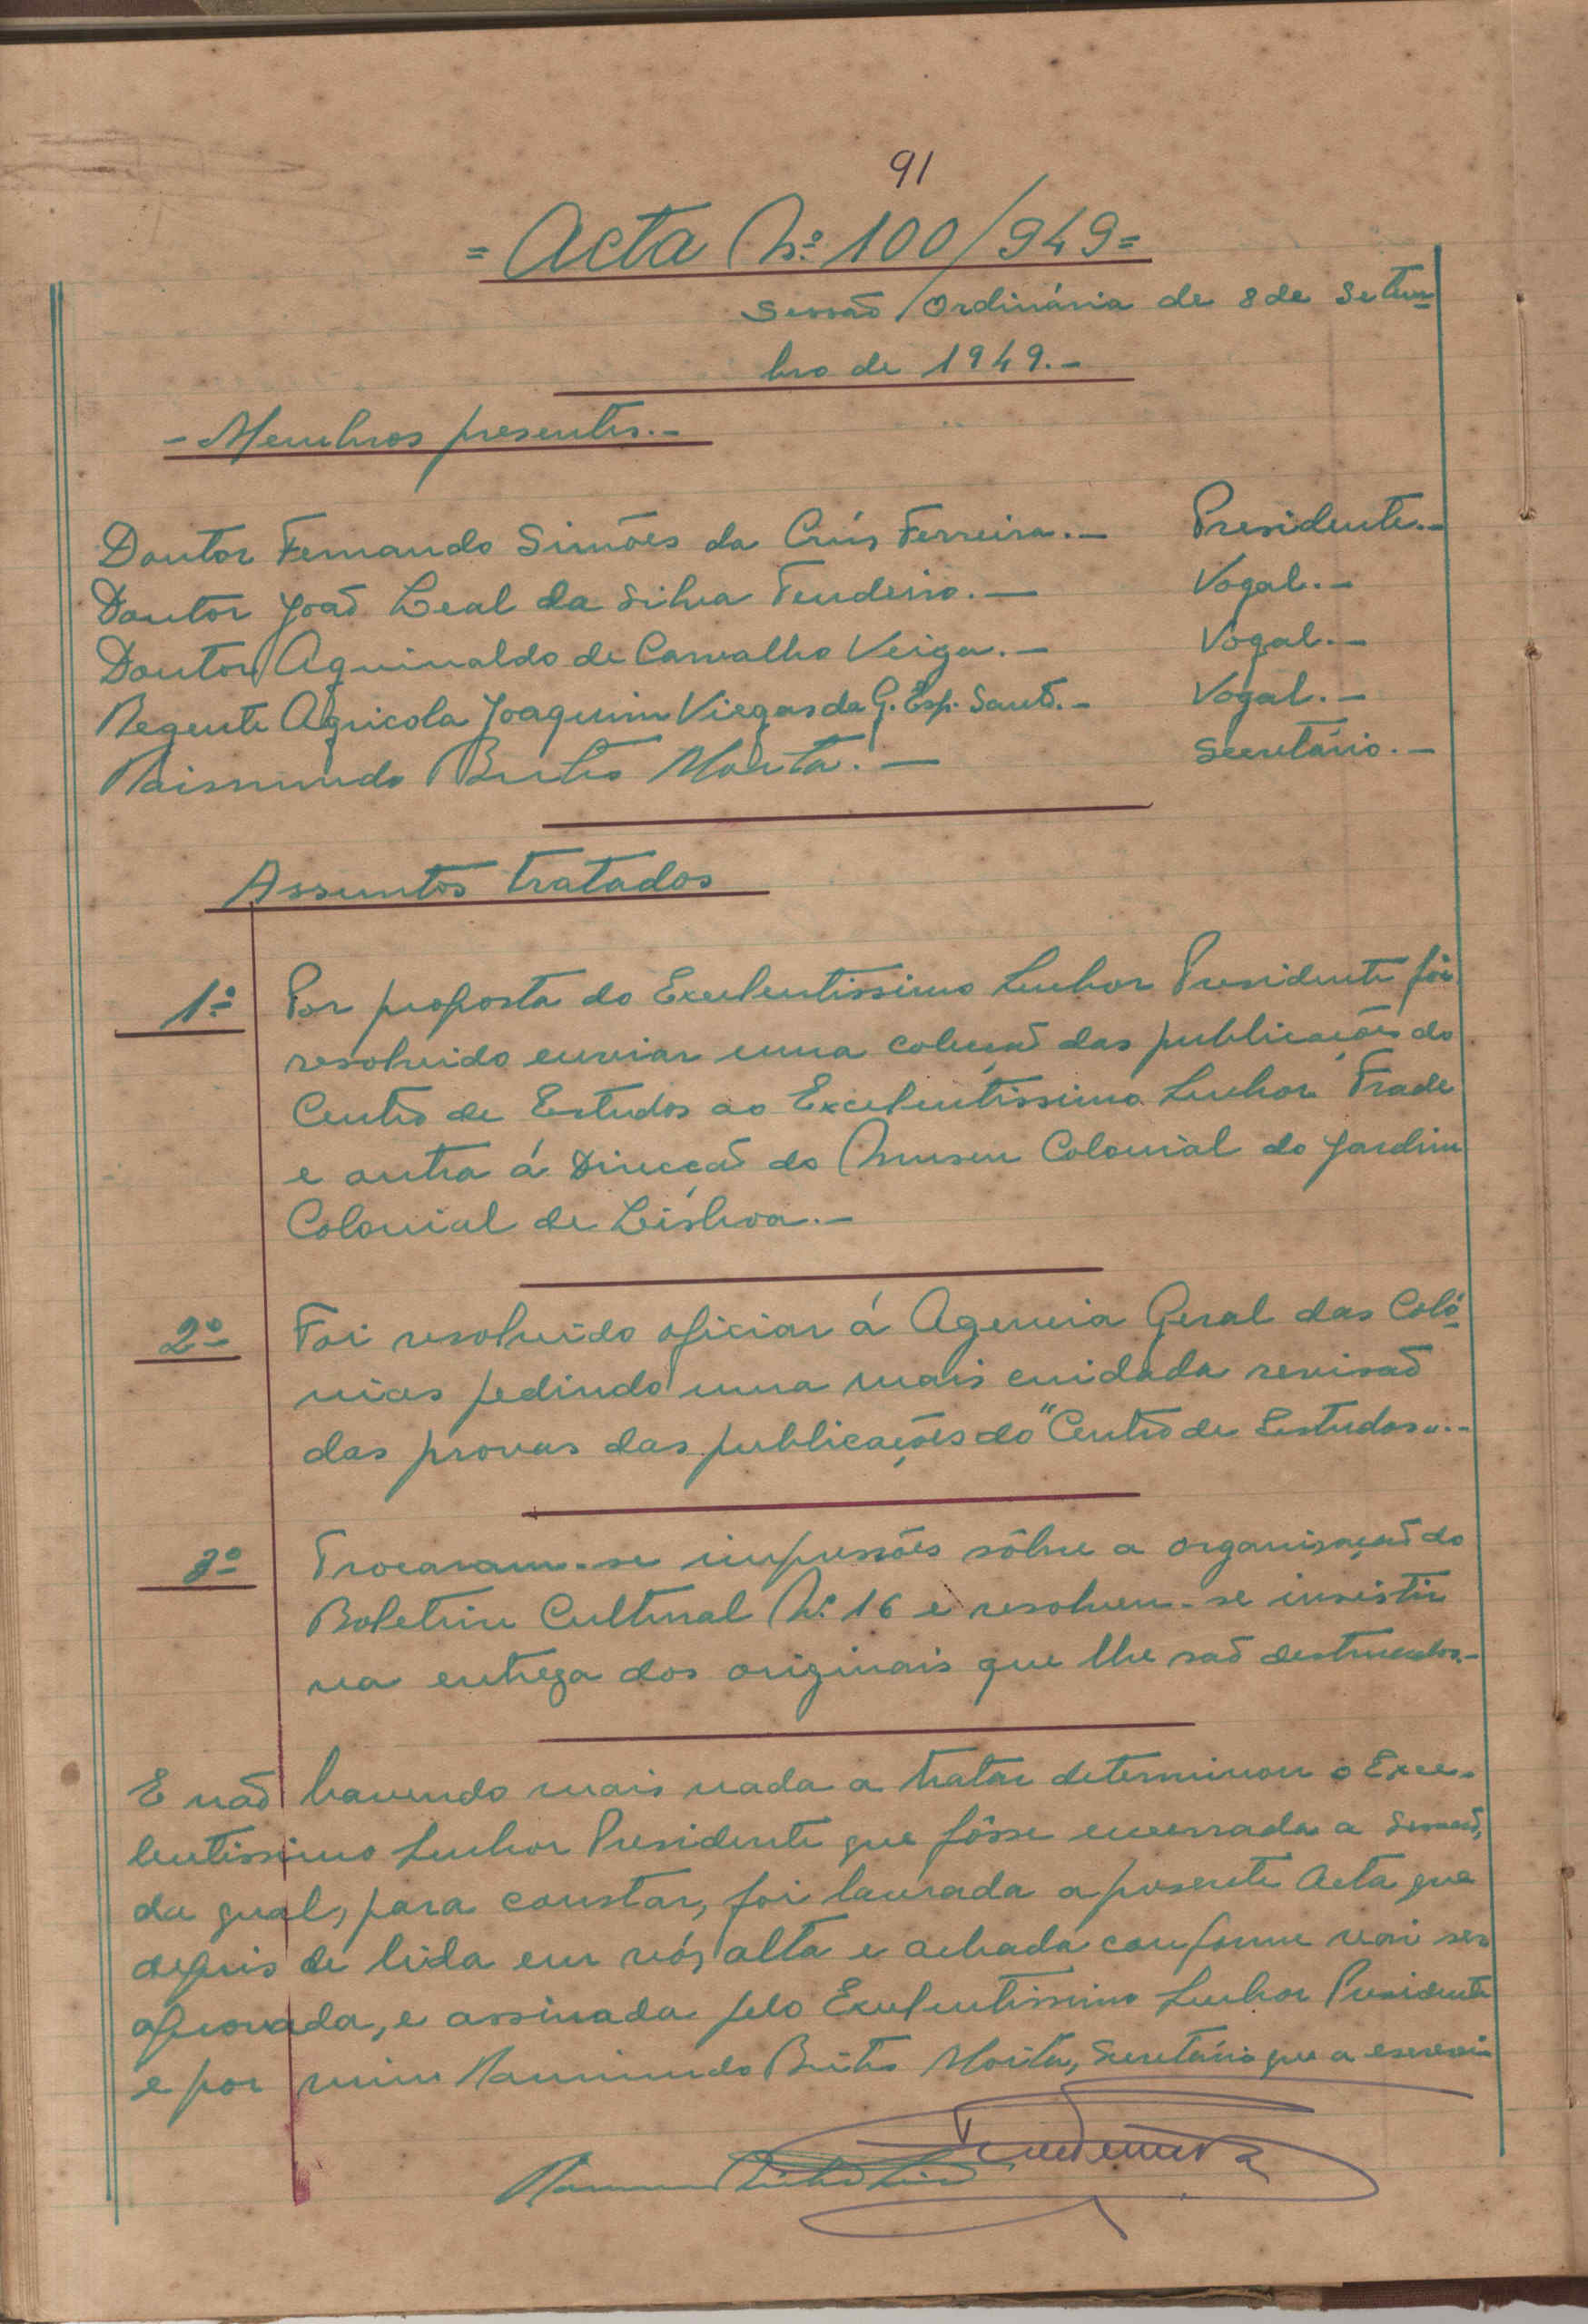 91
= Acta Nº 100/949 =
Sessão Ordinária de 8 de Setem-
bro de 1949.-
- Membros presentes.-
Doutor Fernando Simões da Crús Ferreira.- Presidente.-
Doutor João Leal da Silva Tendeiro.- Vogal.-
Doutor Aguinaldo de Carvalho Veiga.- Vogal.-
Regente Agricola Joaquim Viegas da G. Esp. Santo.- Vogal.-
Raimundo Brito Moita.- Secretário.-
Assuntos tratados
1º Por proposta do Excelentissimo Senhor Presidente fôi
resolvido enviar uma colecção das publicações do
Centro de Estudos ao Excelentissimo Senhor Frade
e outra á Direcção do Museu Colonial do Jardim
Colonial de Lisbôa.-
2º Foi resolvido oficiar á Agencia Geral das Coló-
nias pedindo uma mais cuidada revisão
das provas das publicações do "Centro de Estudos".-
3º Trocaram-se impressões sôbre a organisação do
Boletim Cultural Nº 16 e resolveu-se insistir
na entrega dos originais que lhe são destinados.-
E não havendo mais nada a tratar determinou o Exce-
lentissimo Senhor Presidente que fôsse encerrada a Sessão,
da qual, para constar, foi lavrada a presente Acta que
depois de lida em vós alta e achada conforme vai ser
aprovada, e assinada pelo Excelentissimo Senhor Presidente
e por mim Raimundo Brito Moita, Secretário que a escrevi